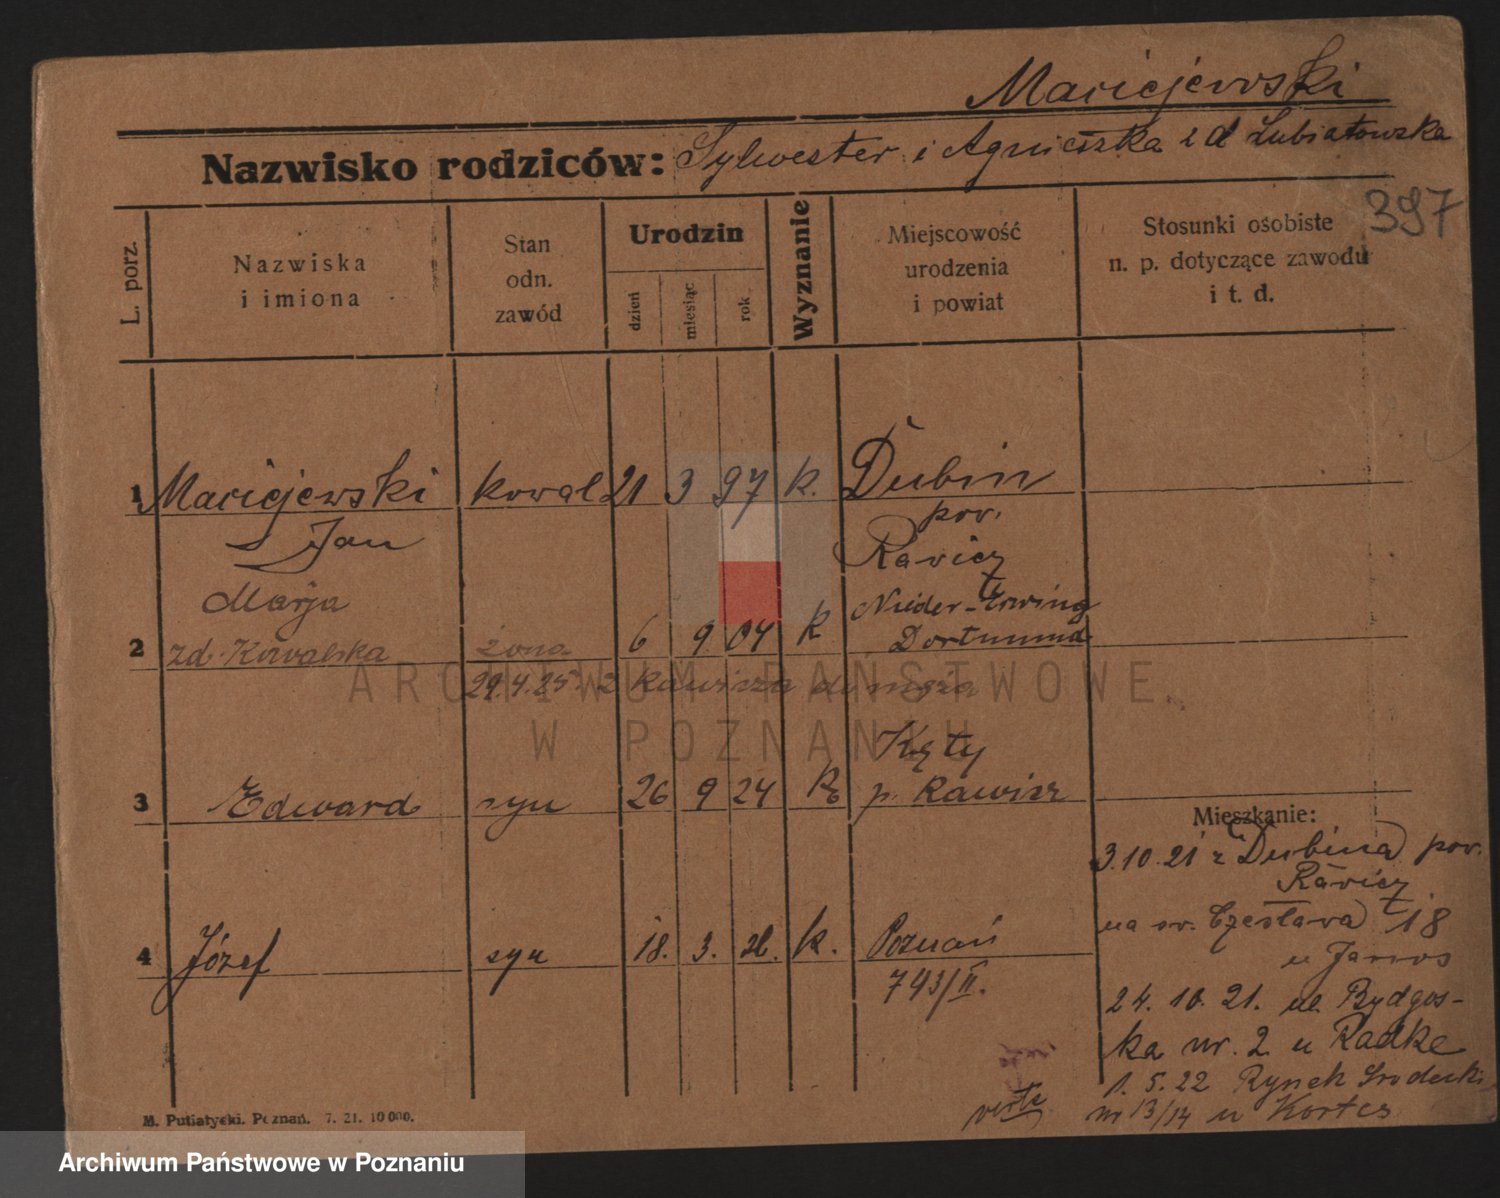 Maciejewski
Nazwisko rodziców: Sylwester i Agnieszka z d Lubiatowska
397
L. porz.
Nazwiska
i imiona
Stan
odn.
zawód
Urodzin
dzień
miesiąc
rok
Wyznanie
Miejscowość
urodzenia
i powiat
Stosunki osobiste
n. p. dotyczące zawodu
i t. d.
1 Maciejewski kowal 21 3 97 k. Dubin
Jan pow.
Rawicz
Marja Nieder-
2 zd. Kowalska żona 6 9 04 k Dortmund
29.4.25 z Rawicza do męża
Kęty
3 Edward syn 26 9 24 k p. Rawicz
Mieszkanie:
3.10.21 z Dubina pow.
Rawicz
na św. Czesława 18
u Janos
4 Józef syn 18. 3. k. Poznań
793/II.
24. 10. 21. ul. Bydgos-
ka nr. 2 u Radke
1. 5. 22 Rynek Środecki
nr 13/14 u Kortes
verte
M. Putiatycki. Poznań. 7. 21. 10000.
ARCHIWUM PAŃSTWOWE
W POZNANIU
Archiwum Państwowe w Poznaniu